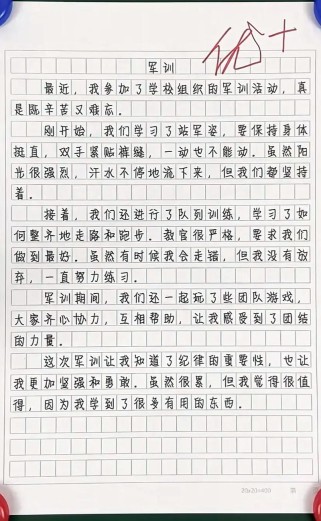 优+
军训
最近，我参加了学校组织的军训活动，真
是既辛苦又难忘。
刚开始，我们学习了站军姿，要保持身体
挺直，双手紧贴裤缝，一动也不能动。虽然阳
光很强烈，汗水不停地流下来，但我们都坚持
着。
接着，我们还进行了队列训练，学习了如
何整齐地走路和跑步。教官很严格，要求我们
做到最好。虽然有时候我会走错，但我没有放
弃，一直努力练习。
军训期间，我们还一起玩了些团队游戏，
大家齐心协力，互相帮助，让我感受到了团结
的力量。
这次军训让我知道了纪律的重要性，也让
我更加坚强和勇敢。虽然很累，但我觉得很值
得，因为我学到了很多有用的东西。
20×20=400 第